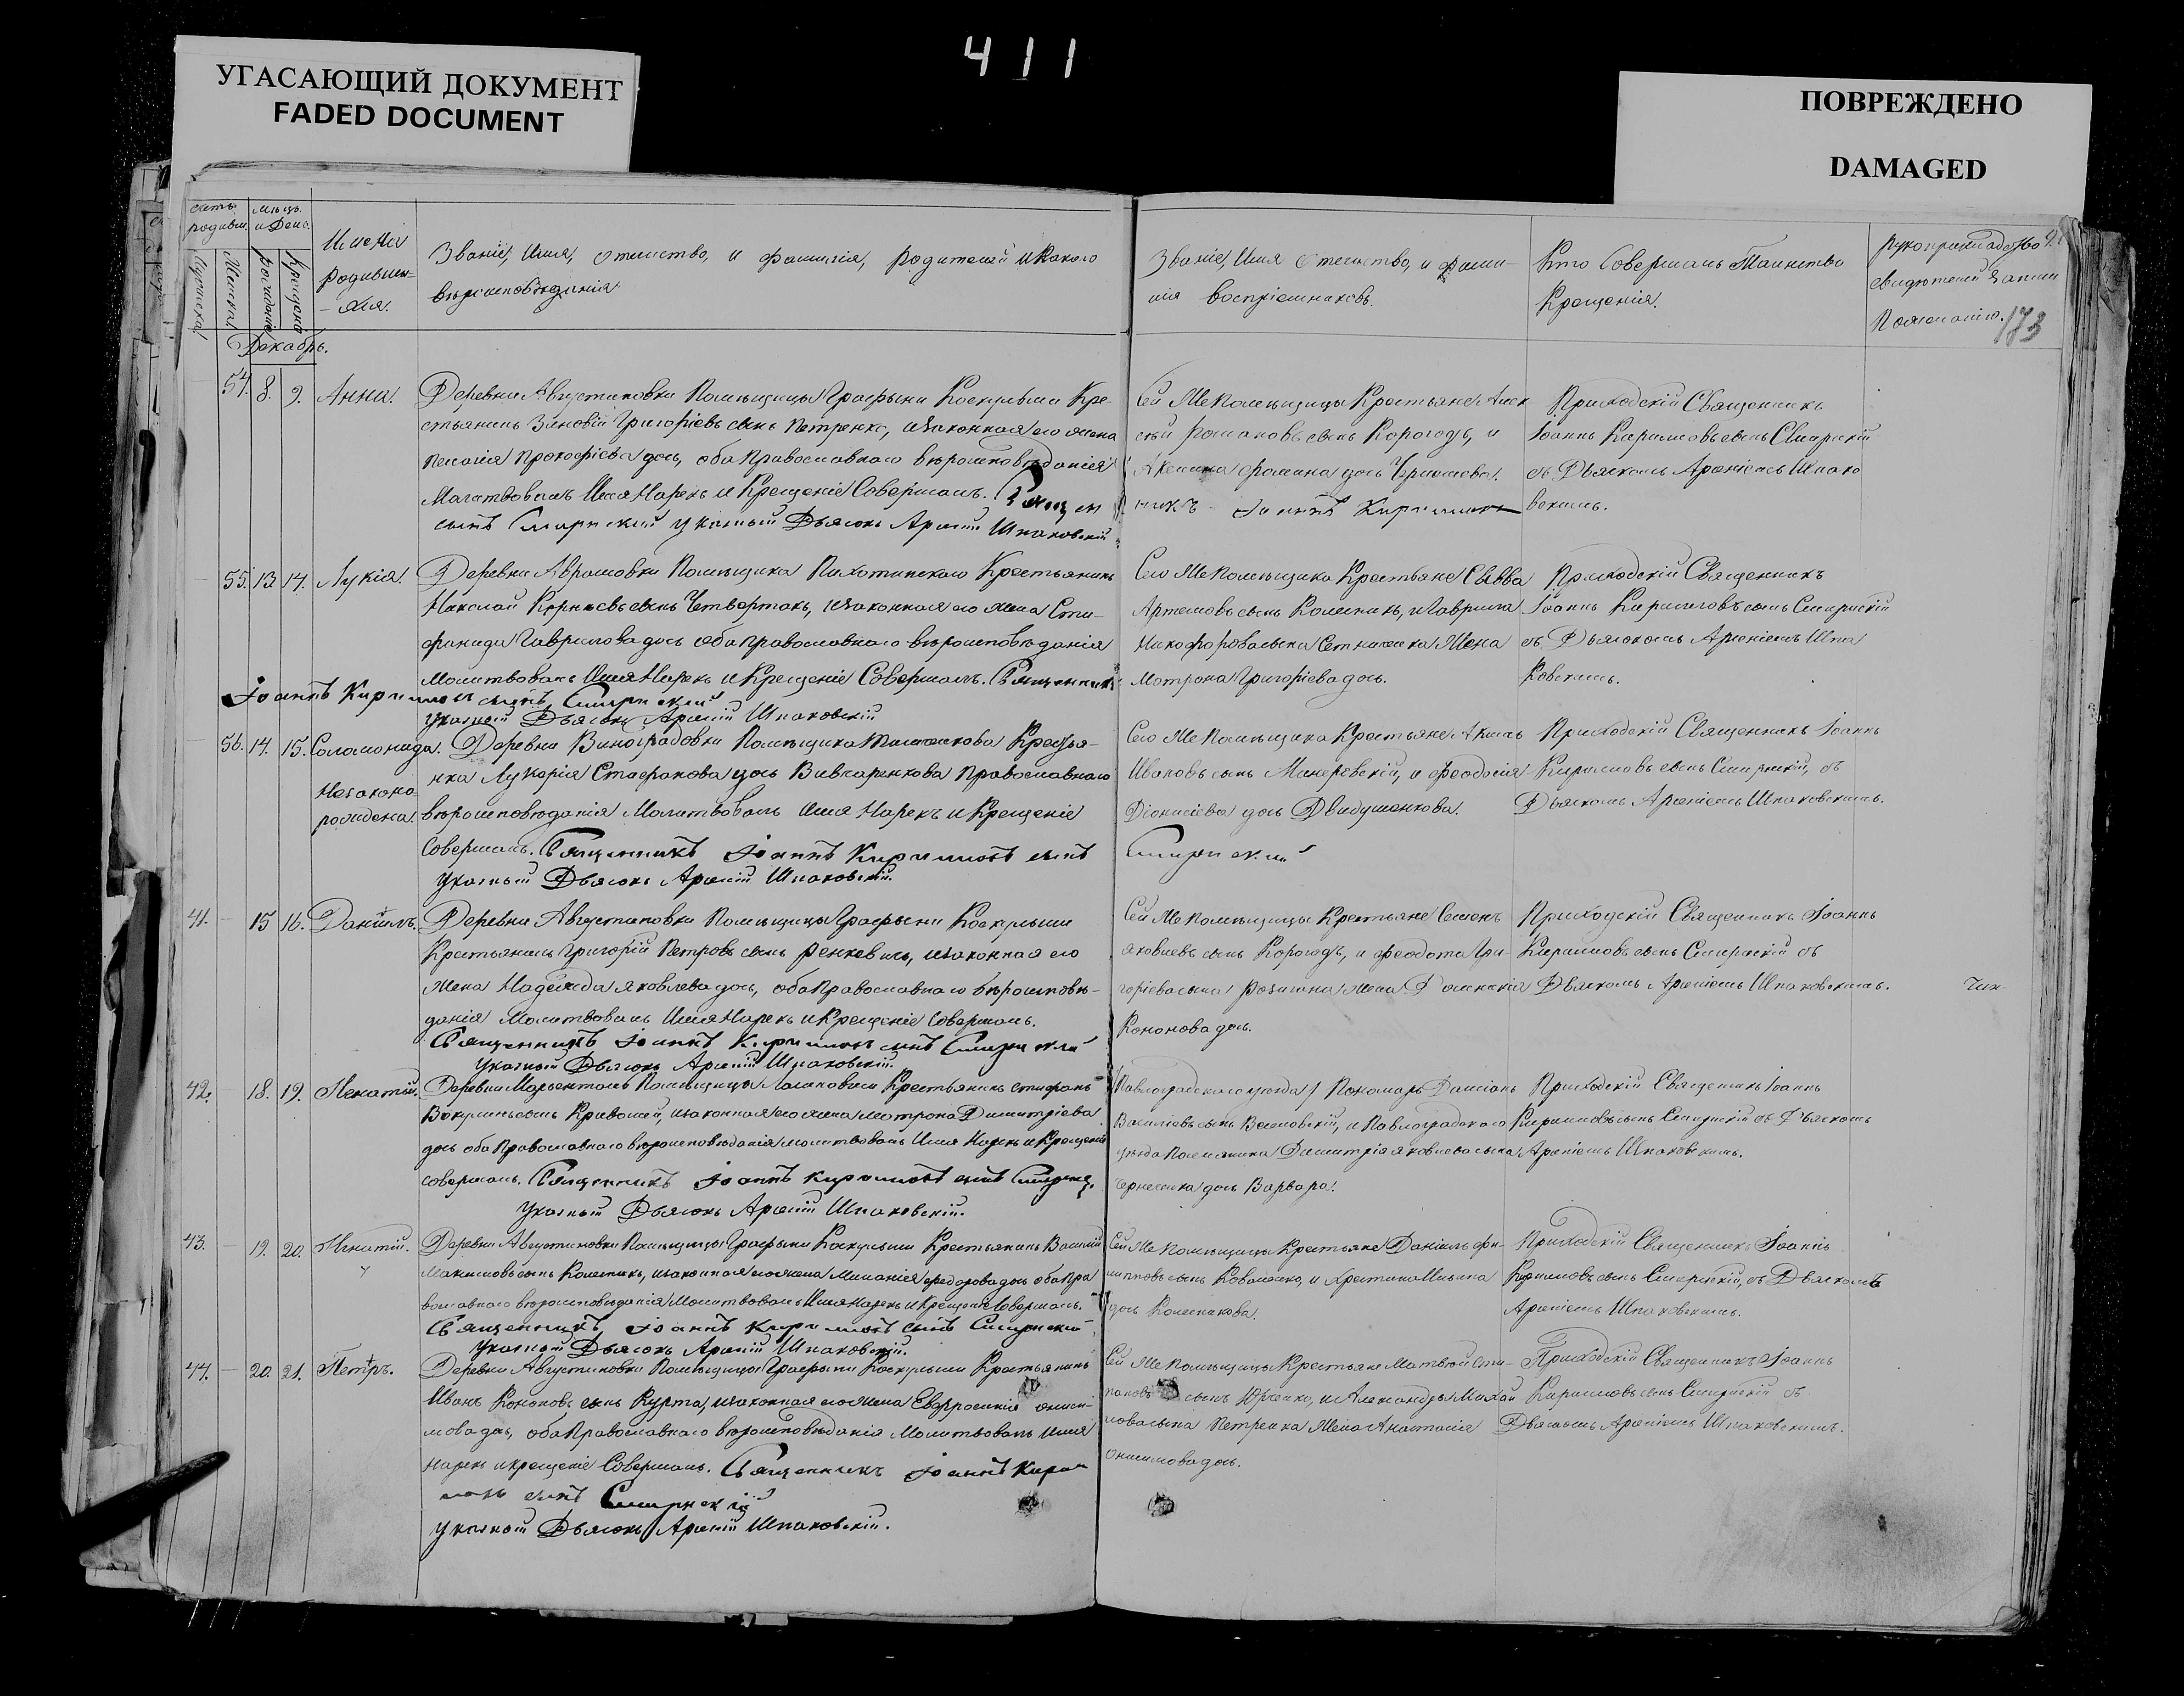 411
УГАСАЮЩИЙ ДОКУМЕНТ
FADED DOCUMENT
ПОВРЕЖДЕНО
DAMAGED
173
Счетъ родивш.
Мужеска
Женска
Мѣсцъ и День.
рожденія
Крещенія
Имена
родивших-
-ся.
Званіе, Имя, отчество, и фамилія, родителей и Какого
вѣроисповѣданія.
Званіе, Имя Отечество, и фами-
лія воспріемниковъ.
Кто Совершалъ Таинство
Крещенія.
рукоприкладство
свидѣтелей записи
По желанію.
Декабрь.
54. 8. 9. Анна.
Деревни Августиновки Помѣщицы Графыни Коскульши Кре-
стьянинъ Зиновій Григоріевъ сынъ Петренко, и законная его жена
Пелагія Прокофіева дочь, оба Православнаго вѣроисповѣданія
Молитвовалъ Имя Нарекъ и Крещеніе Совершалъ. Священ
никъ Іоаннъ Кирилловъ
сынъ Смирнскій указный Дьячокъ Арсеній Шпаковскій
Сей Же Помѣщицы Крестьяне Алек
сѣй Романовъ сынъ Корогодъ, и
Акелина Фомина дочь
Приходскій Священникъ
Іоаннъ Кирилловъ сынъ Смирнскій
съ Дьячкомъ Арсеніемъ Шпако
вскимъ.
55. 13. 14. Лукія.
Деревни Аврамовки Помѣщика Пихотинскаго Крестьянинъ
Николай Корнѣевъ сынъ Четвертакъ, и законная его жена Сте-
фанида Гаврилова дочь оба Православнаго вѣроисповѣданія
Молитвовалъ Имя Нарекъ и Крещеніе Совершалъ. Священникъ
Іоаннъ Кирилловъ сынъ Смирнскій
указный Дьячокъ Арсеній Шпаковскій
Сего Же Помѣщика Крестьяне Савва
Артемовъ сынъ Колесникъ, и Гаврила
Никофорова сына Жена
Мотрона Григоріева дочь.
Приходскій Священникъ
Іоаннъ Кирилловъ сынъ Смирнскій
съ Дьячкомъ Арсеніемъ Шпа
ковскимъ.
56. 14. 15. Соломонида.
Незаконо-
рождена.
Деревни Виноградовки Помѣщика Крестья-
нка Лукерія Стафанова дочь Вивчаренкова Православнаго
вѣроисповѣданія Молитвовалъ Имя Нарекъ и Крещеніе
Совершалъ. Священникъ Іоаннъ Кирилловъ сынъ
Смирнскій
Указный Дьячокъ Арсеній Шпаковскій.
Сего Же Помѣщика Крестьяне
Ивановъ сынъ и Феодосія
Діонисіева дочь
Приходскій Священникъ Іоаннъ
Кирилловъ сынъ Смирнскій, съ
Дьячкомъ Арсеніемъ Шпаковскимъ.
41. 15 16. Даніилъ.
Деревни Августиновки Помѣщицы Графыни Коскульши
Крестьянинъ Григорій Петровъ сынъ и законная его
жена Надежда Яковлева дочь, оба Православнаго вѣроисповѣ-
данія Молитвовалъ Имя Нарекъ и Крещеніе Совершалъ.
Священникъ Іоаннъ Кирилловъ сынъ Смирнскій
Указный Дьячокъ Арсеній Шпаковскій.
Сей Же Помѣщицы Крестьяне Семенъ
Яковлевъ сынъ Корогодъ, и Феодота Гри-
горіева сына жена
Кононова дочь.
Приходскій Священникъ Іоаннъ
Кирилловъ сынъ Смирнскій съ
Дьячкомъ Арсеніемъ Шпаковскимъ.
42. 18. 19. Игнатій.
Деревни Помѣщицы Крестьянинъ Стефанъ
сынъ Кривошей, и законная его жена Мотрона Димитріева
дочь оба Православнаго вѣроисповѣданія молитвовалъ Имя Нарекъ и Крещеніе
совершалъ. Священникъ Іоаннъ Кирилловъ сынъ
Указный Дьячокъ Арсеній Шпаковскій.
Павлоградскаго уѣзда Пономарь
Василіевъ сынъ и Павлоградскаго
уѣзда Димитрія Яковлева сына
дочь Варвара.
Приходскій Священникъ Іоаннъ
Кирилловъ сынъ Смирнскій съ Дьячкомъ
Арсеніемъ Шпаковскимъ.
43. 19. 20. Игнатій.
Деревни Августиновки Помѣщицы Графыни Коскульши Крестьянинъ Василій
Максимовъ сынъ Колесникъ, и законная его жена Меланія Федорова дочь оба Пра
вославнаго вѣроисповѣданія Молитвовалъ Имя Нарекъ и Крещеніе Совершалъ.
Священникъ Іоаннъ Кирилловъ сынъ Смирнскій
Указный Дьячокъ Арсеній Шпаковскій.
Сей Же Помѣщицы Крестьяне Даніилъ Фи-
липповъ сынъ Коваленко, и Христина
дочь Колесникова.
Приходскій Священникъ Іоаннъ
Кирилловъ сынъ Смирнскій, съ Дьячкомъ
Арсеніемъ Шпаковскимъ.
44. 20. 21. Петръ.
Деревни Августиновки Помѣщицы Графыни Коскульши Крестьянинъ
Иванъ Кононовъ сынъ Курта, и законная его жена Евфросинія Ониси-
мова дочь, оба Православнаго вѣроисповѣданія Молитвовалъ Имя
Нарекъ и крещеніе Совершалъ. Священникъ Іоаннъ Кирил
ловъ сынъ Смирнскій
Указный Дьячокъ Арсеній Шпаковскій.
Сей Же Помѣщицы Крестьяне Матвей Сте-
пановъ сынъ Юрченко, и Александры Михай
лова сына Петренка Жена Анастасія
Онисимова дочь.
Приходскій Священникъ Іоаннъ
Кирилловъ сынъ Смирнскій съ
Дьячкомъ Арсеніемъ Шпаковскимъ.